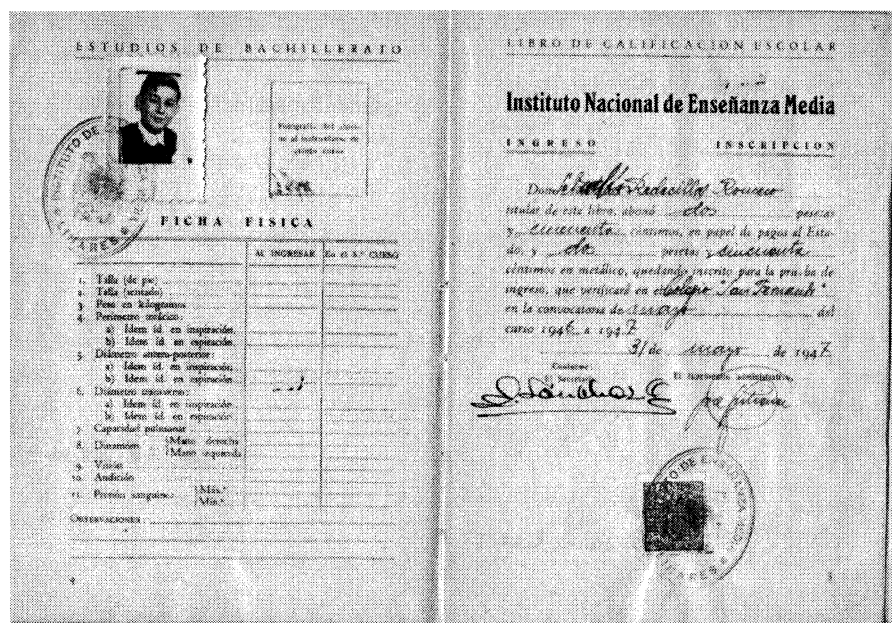 ESTUDIOS DE BACHILLERATO
FICHA FISICA
AL INGRESAR En el 5.º CURSO
1. Talla (de pie)
2. Talla (sentado)
3. Peso en kilogramos
4. Perímetro torácico:
a) Idem id. en inspiración
b) Idem id. en espiración
5. Diámetro antero-posterior:
a) Idem id. en inspiración
b) Idem id. en espiración
6. Diámetro transverso:
a) Idem id. en inspiración
b) Idem id. en espiración
7. Capacidad pulmonar
8. Dinamom. Mano derecha
Mano izquierda
9. Visión
10. Audición
11. Presión sanguínea Máx.ª
Mín.ª
OBSERVACIONES
4
LIBRO DE CALIFICACION ESCOLAR
Instituto Nacional de Enseñanza Media
INGRESO INSCRIPCION
Redecillas Romero
titular de este libro, abonó dos pesetas
y cincuenta céntimos, en papel de pagos al Esta-
do, y dos pesetas y cincuenta
céntimos en metálico, quedando inscrito para la prueba de
ingreso, que verificará en el Colegio "San Fernando"
en la convocatoria de mayo del
curso 1946 a 1947
31 de mayo de 1947
El Secretario,
INSTITUTO DE
LINARES